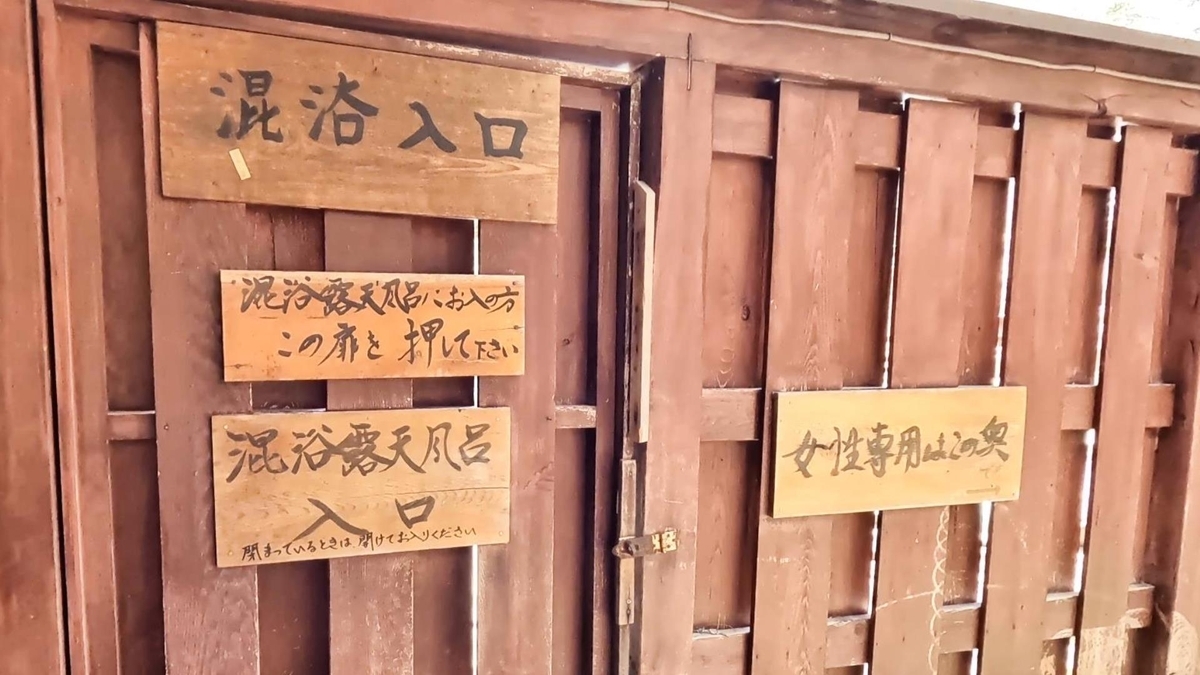 混浴入口
混浴露天風呂にお入の方
この扉を押して下さい
混浴露天風呂
入口
閉まっているときは開けてお入りください
女性専用はこの奥